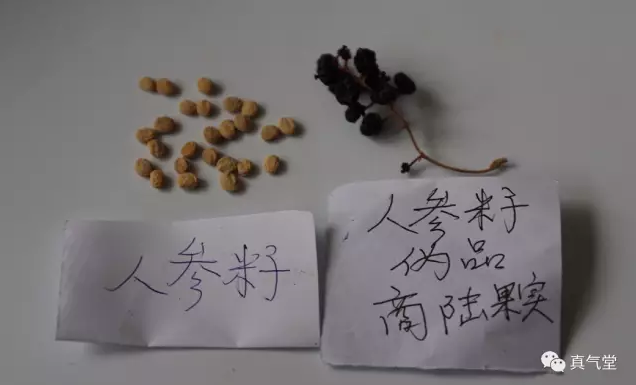 人参籽
人参籽
伪品
商陆果实
真气堂